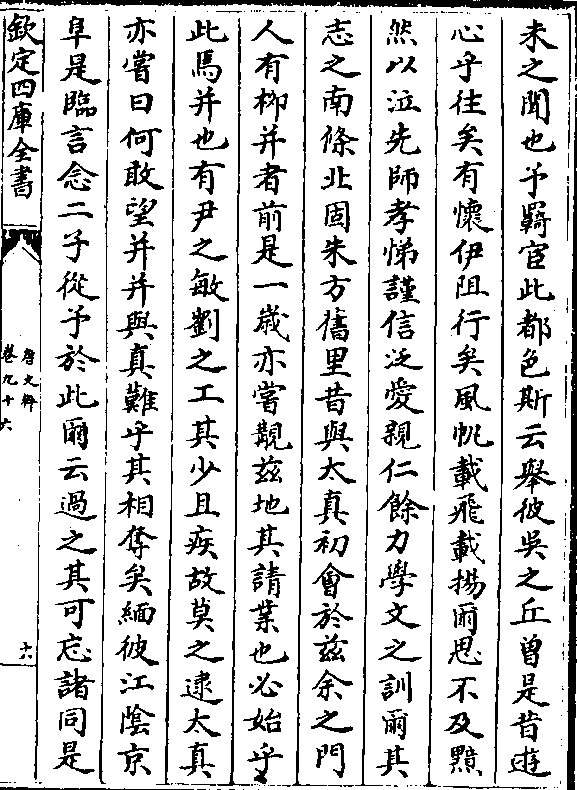 未之聞也予羇宦此都色斯云舉彼吳之丘曽是昔遊
心乎往矣有懷伊阻行矣風帆載飛載揚爾思不及黯
然以泣先師孝悌謹信泛愛親仁餘力學文之訓爾其
志之南條北固朱方舊里昔與太真初會於兹余之門
人有柳并者前是一歳亦嘗覯兹地其請業也必始乎
此焉并也有尹之敏劉之工其少且疾故莫之逮太真
亦嘗曰何敢望并并與真難乎其相奪矣緬彼江陰京
阜是臨言念二子從予於此爾云過之其可忘諸同是
欽定四庫全書
唐文粹
卷九十六
十六